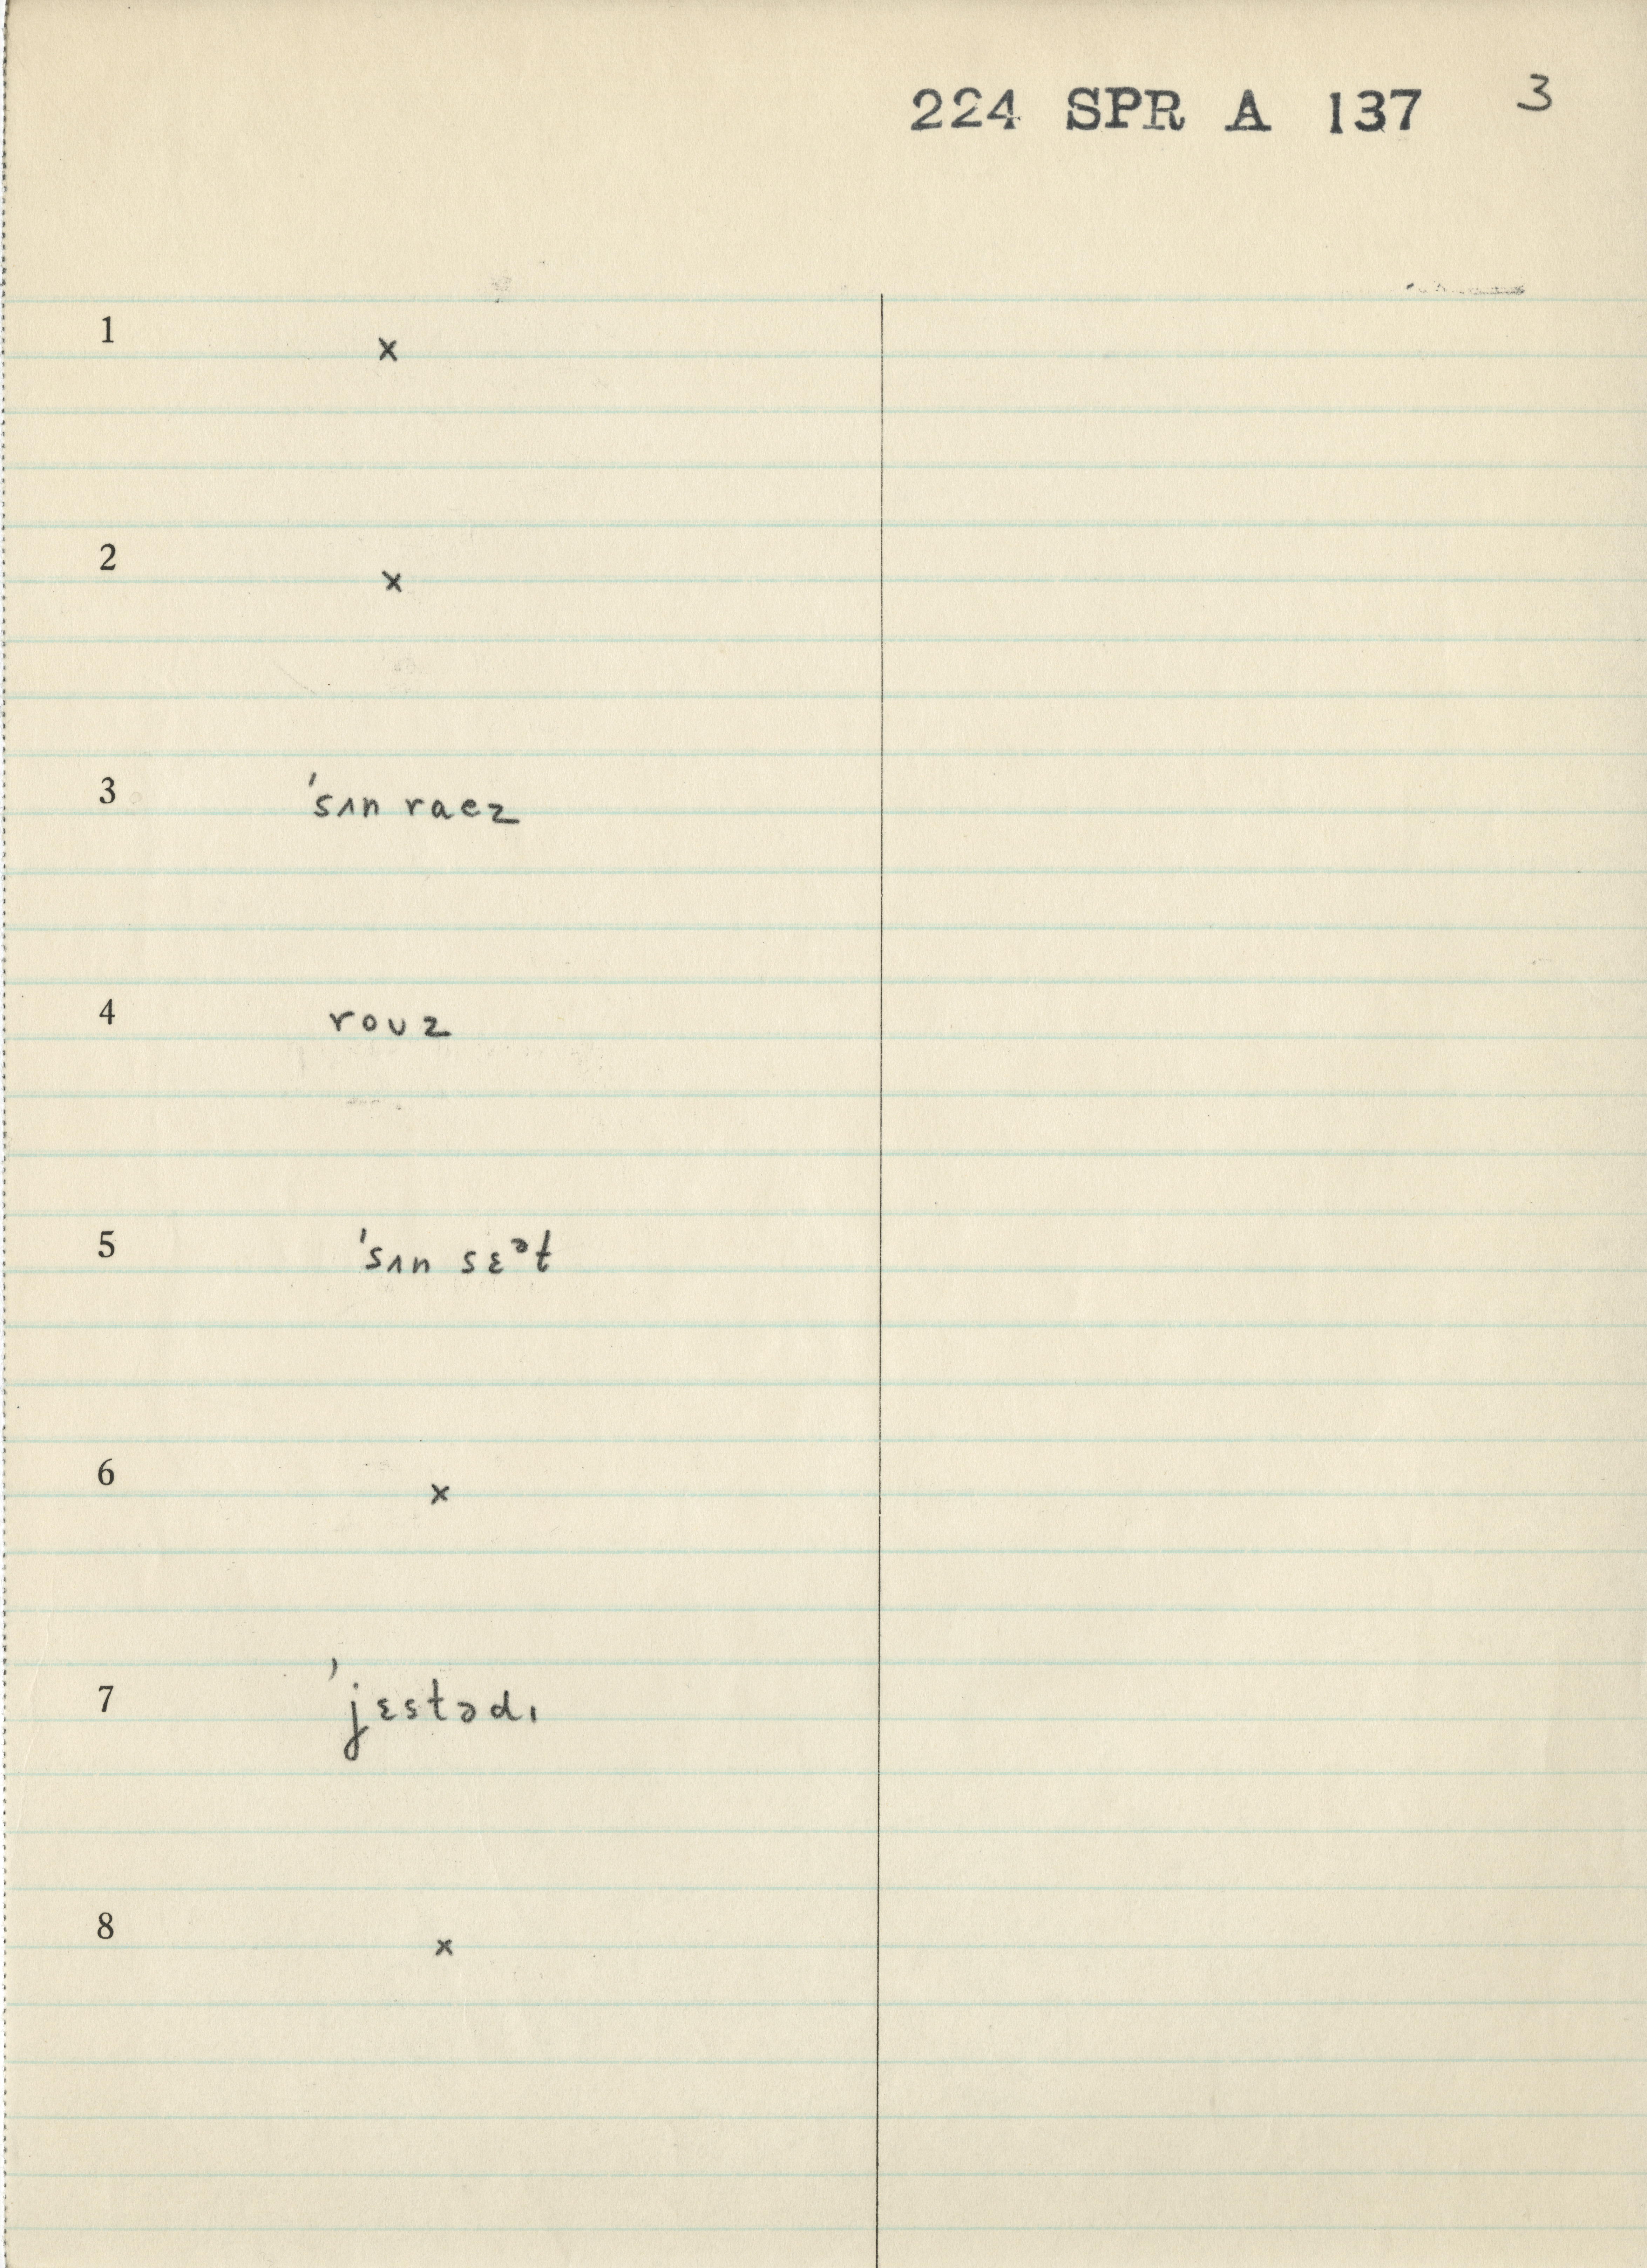 224 SPR A 137 3
1 x
2 x
3 ˈsʌn raez
4 rouz
5 ˈsʌn sɛᵊt
6 x
7 ˈjɛstədɪ
8 x